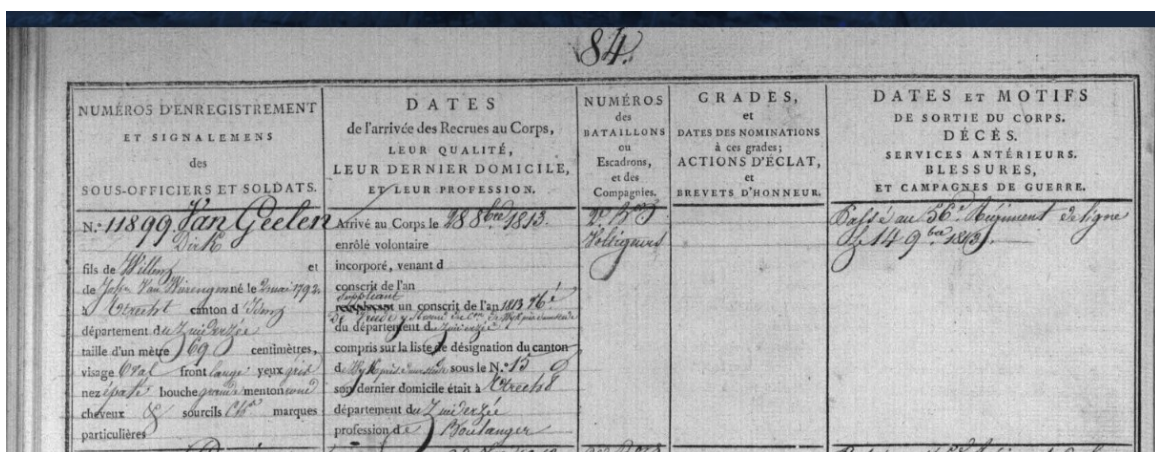 84.
NUMÉROS D'ENREGISTREMENT
ET SIGNALEMENS
des
SOUS-OFFICIERS ET SOLDATS.
DATES
de l'arrivée des Recrues au Corps,
LEUR QUALITÉ,
LEUR DERNIER DOMICILE,
ET LEUR PROFESSION.
NUMÉROS
des
BATAILLONS
ou
Escadrons,
et des
Compagnies.
GRADES,
et
DATES DES NOMINATIONS
à ces grades;
ACTIONS D'ÉCLAT,
et
BREVETS D'HONNEUR.
DATES ET MOTIFS
DE SORTIE DU CORPS.
DÉCÈS.
SERVICES ANTÉRIEURS.
BLESSURES,
ET CAMPAGNES DE GUERRE.
N.º 11899 Van Geelen
Dirk
fils de Willem et
de né le 2 mai 1792
à Utrecht canton d'Idem
département du Zuiderzée
taille d'un mètre 69 centimètres,
visage Oval front large yeux gris
nez épaté bouche grande menton rond
cheveux & sourcils Ch.ns marques
particulières
Arrivé au Corps le 28 8bre 1813.
enrôlé volontaire
incorporé, venant d
conscrit de l'an
suppléant
remplaçant un conscrit de l'an 1813
du département d Zuiderzée
compris sur la liste de désignation du canton
d sous le N.º 15
son dernier domicile était à Utrecht
département du Zuiderzée
profession de Boulanger
2e Bon
Voltigeurs
Passé au 56e Régiment de ligne
le 14 9bre 1813.